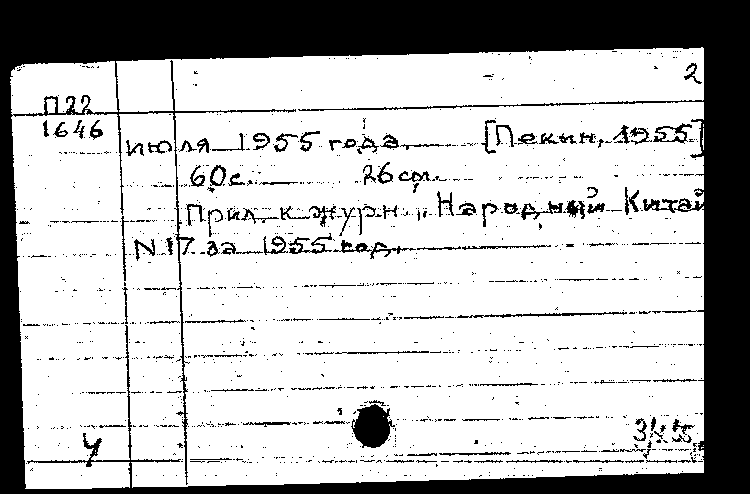 2
П22
1646
июля 1955 года. [Пекин, 1955]
60с. 26см.
Прил. к журн. „Народный Китай
N 17 за 1955 год.
У